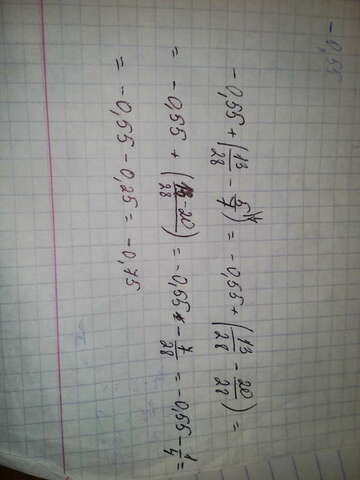 -0,55
-0,55 + (13/28 - 5/7\4) = -0,55 + (13/28 - 20/28) =
= -0,55 + (13-20/28) = -0,55 - 7/28 = -0,55 - 1/4 =
= -0,55 - 0,25 = -0,75